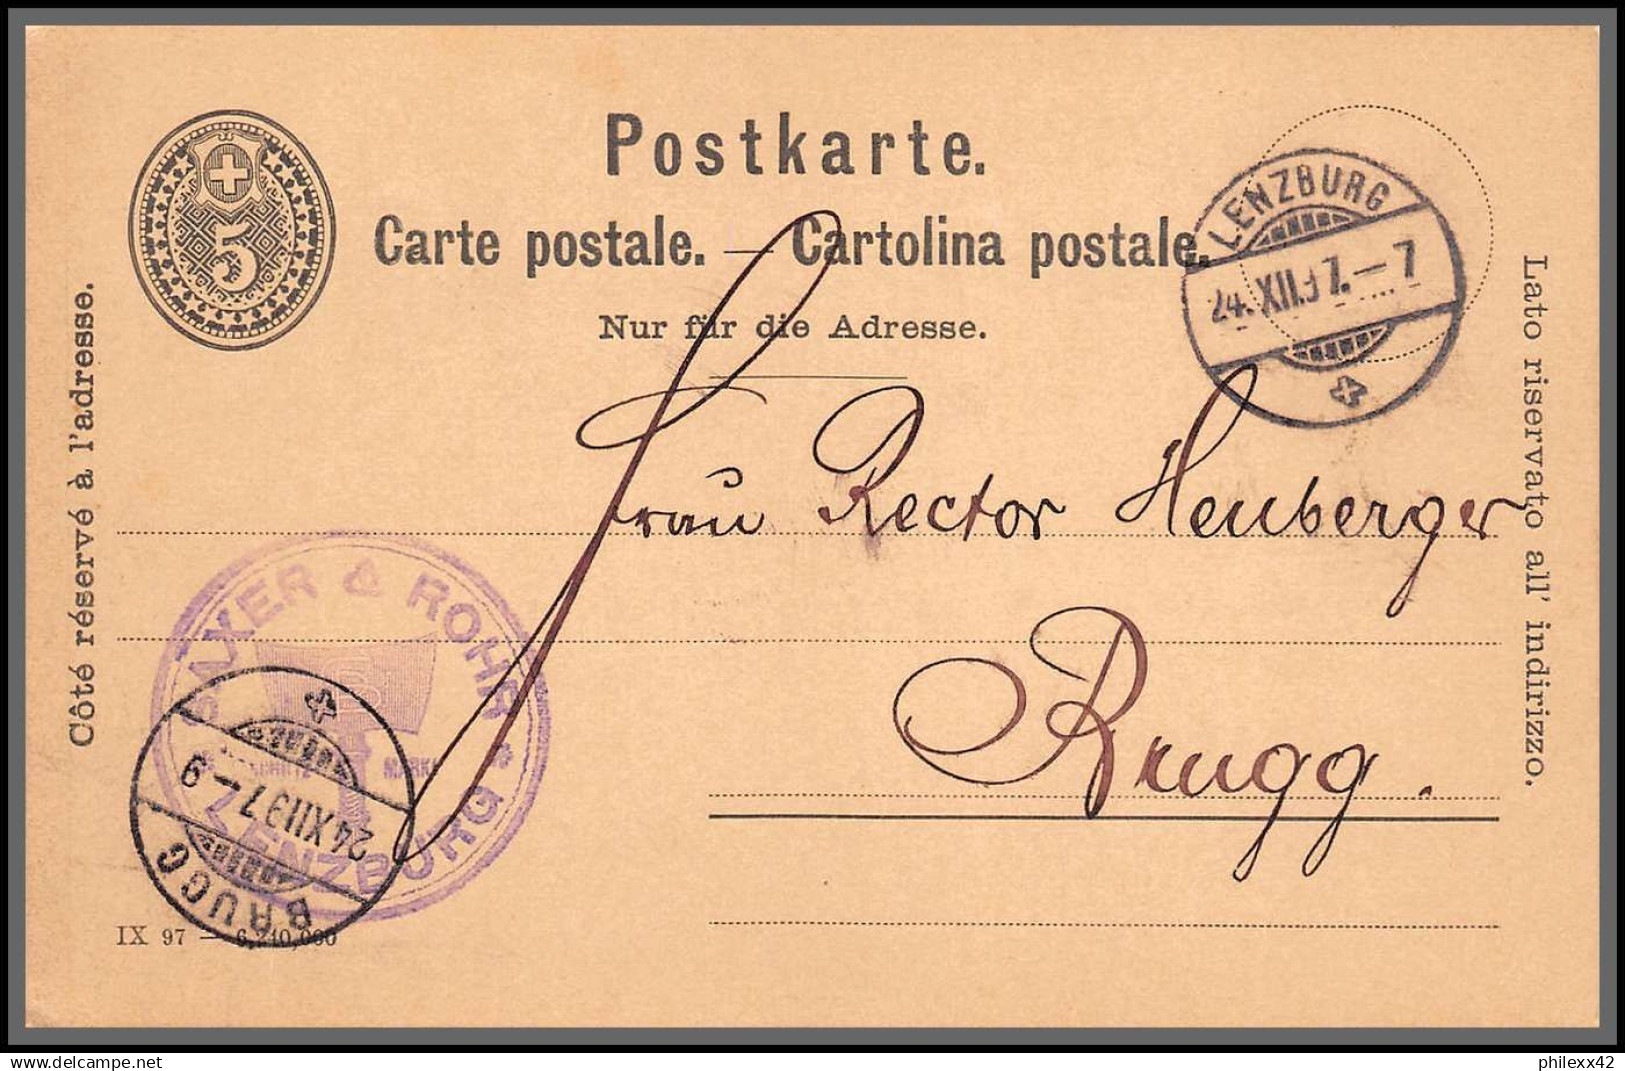 Postkarte.
Carte postale. — Cartolina postale.
Nur für die Adresse.
5
LENZBURG
24.XII.97.—7
Côté réservé à l'adresse.
Lato riservato all' indirizzo.
Frau Rector Heuberger
Brugg.
SAXER & ROHR
SCHUTZ MARKE
LENZBURG
BRUGG
24 XII 97 — 9
IX 97 — 6,210,000
delcampe.net
philexx42